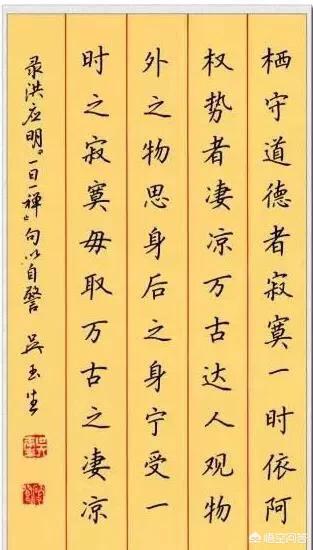 栖守道德者寂寞一时依阿
权势者凄凉万古达人观物
外之物思身后之身宁受一
时之寂寞毋取万古之凄凉
录洪应明《一日一禅》句以自警 吴玉生
悟空问答